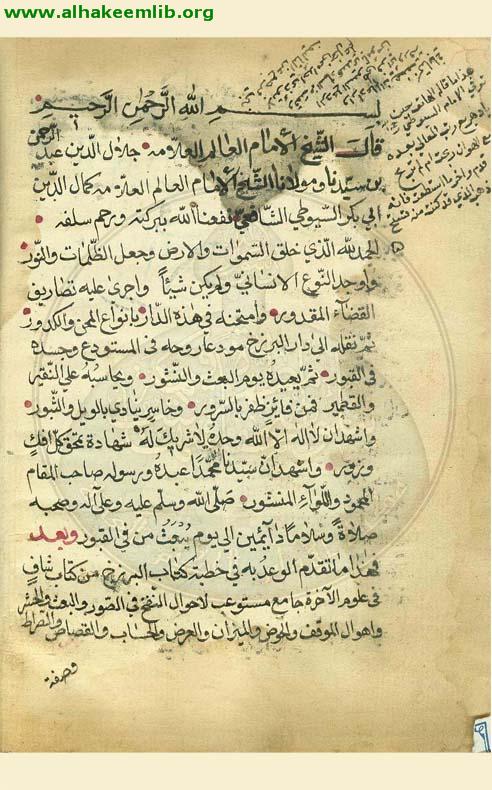 www.alhakeemlib.org
بسم الله الرحمن الرحيم
قال الشيخ الامام العالم العلامة جلال الدين عبد الرحمن
بن سيدنا ومولانا الشيخ الامام العالم العلامة كمال الدين
ابي بكر السيوطي الشافعي نفعنا الله ببركته ورحم سلفه
الحمد لله الذي خلق السموات والارض وجعل الظلمات والنور
واوجد النوع الانساني ولم يكن شيئا واجرى عليه تصاريف
القضاء المقدور وامتحنه في هذه الدار بانواع المحن والكدور
ثم نقله الى دار البرزخ مودعا روحه في المستودع وجسده
في القبور ثم يعيده يوم البعث والنشور ويحاسبه على النقير
والقطمير فمن فائز ظفر بالسرور وخاسر ينادي بالويل والثبور
واشهد ان لا اله الا الله وحده لا شريك له شهادة تحق كل افك
وزور واشهد ان سيدنا محمدا عبده ورسوله صاحب المقام
المحمود واللواء المنشور صلى الله وسلم عليه وعلى اله وصحبه
صلاة وسلاما دائمين الى يوم يبعث من في القبور وبعد
فهذا ما تقدم الوعد به في خطبة كتاب البرزخ من كتاب شاف
في علوم الآخرة جامع مستوعب لاحوال النفخ في الصور والبعث والحشر
واهوال الموقف والحوض والميزان والعرض والحساب والقصاص والصراط
وصفة